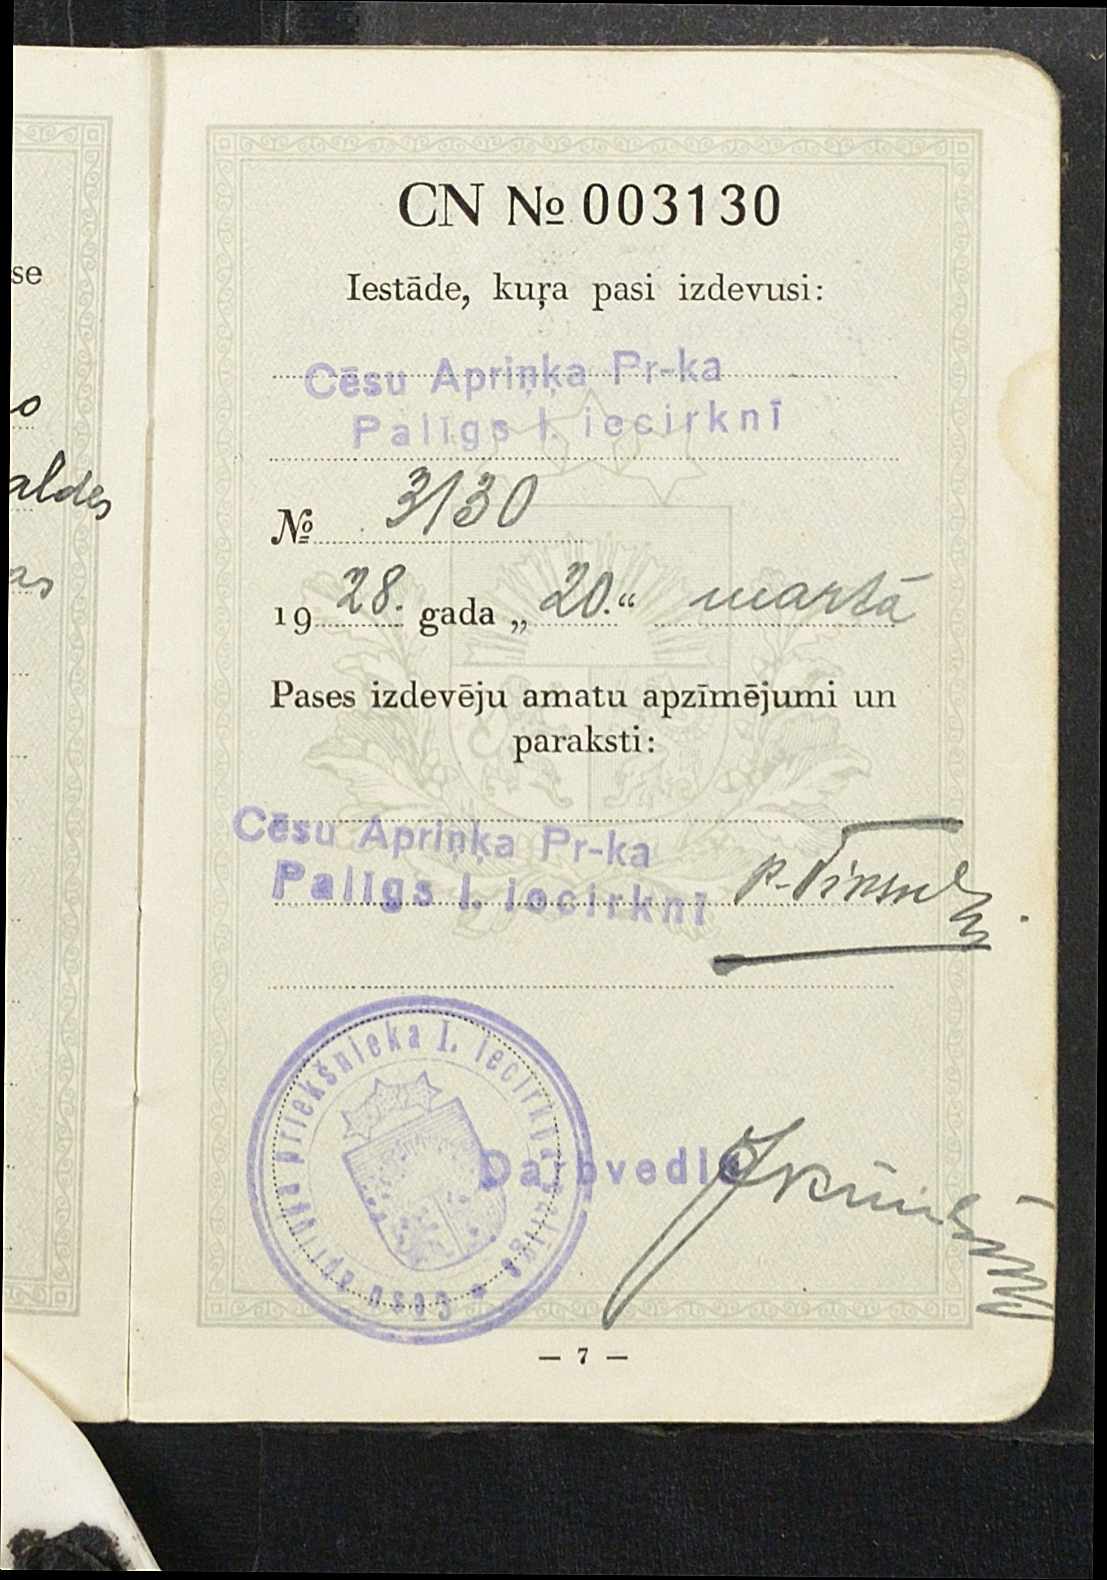 se
o
aldes
as
CN № 003130
Iestāde, kuŗa pasi izdevusi:
Cēsu Apriņķa Pr-ka
Palīgs I. iecirknī
№ 3130
19 28. gada „ 20. “ martā
Pases izdevēju amatu apzīmējumi un
paraksti:
Cēsu Apriņķa Pr-ka
Palīgs I. iecirknī
Cēsu apriņķa priekšnieka I. iecirkņa palīgs
Darbvedis
— 7 —